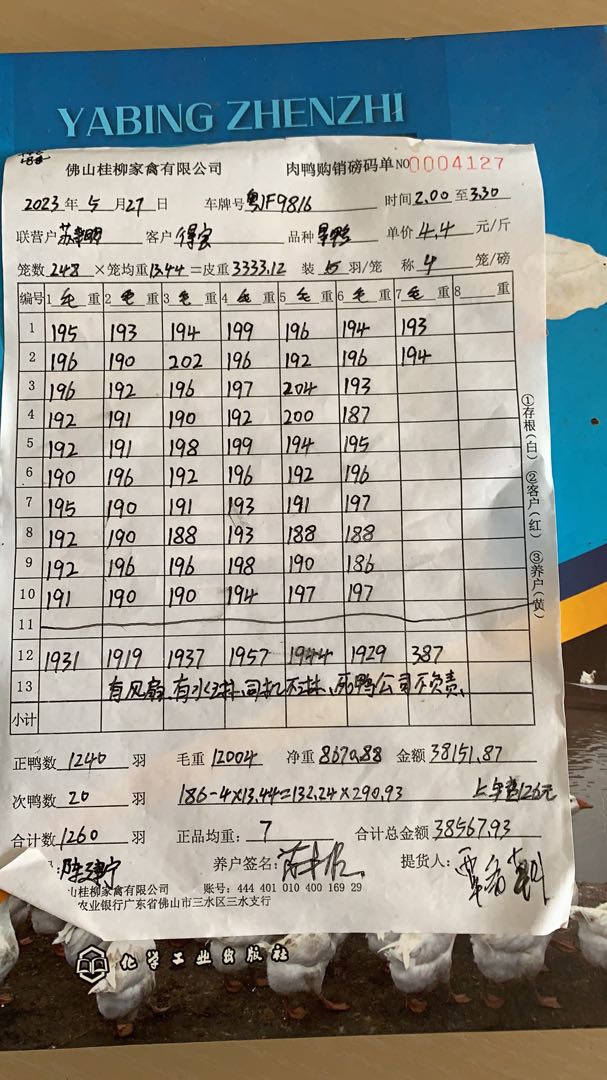 YABING ZHENZHI
佛山桂柳家禽有限公司 肉鸭购销磅码单 NO 0004127
2023年5月27日 车牌号 粤JF9816 时间 2.00 至 3.30
联营户 客户 品种 单价 4.4 元/斤
笼数 248 ×笼均重 13.44 =皮重 3333.12 装 15 羽/笼 称 4 笼/磅
编号 1 毛 重 2 毛 重 3 毛 重 4 毛 重 5 毛 重 6 毛 重 7 毛 重 8 重
1 195 193 194 199 196 194 193
2 196 190 202 196 192 196 194
3 196 192 196 197 204 193
4 192 191 190 192 200 187
5 192 191 198 199 194 195
6 190 196 192 196 192 196
7 195 190 191 193 191 197
8 192 190 188 193 188 188
9 192 196 196 198 190 186
10 191 190 190 194 197 197
11
12 1931 1919 1937 1957 1944 1929 387
13 有风扇、有水淋、司机不淋、死鸭公司不负责、
小计
正鸭数 1240 羽 毛重 12004 净重 8670.88 金额 38151.87
次鸭数 20 羽 186-4×13.44=132.24×290.93
合计数 1260 羽 正品均重: 7 合计总金额 38567.93
养户签名: 提货人:
山桂柳家禽有限公司 账号: 444 401 010 400 169 29
农业银行广东省佛山市三水区三水支行
①存根(白) ②客户(红) ③养户(黄)
化学工业出版社